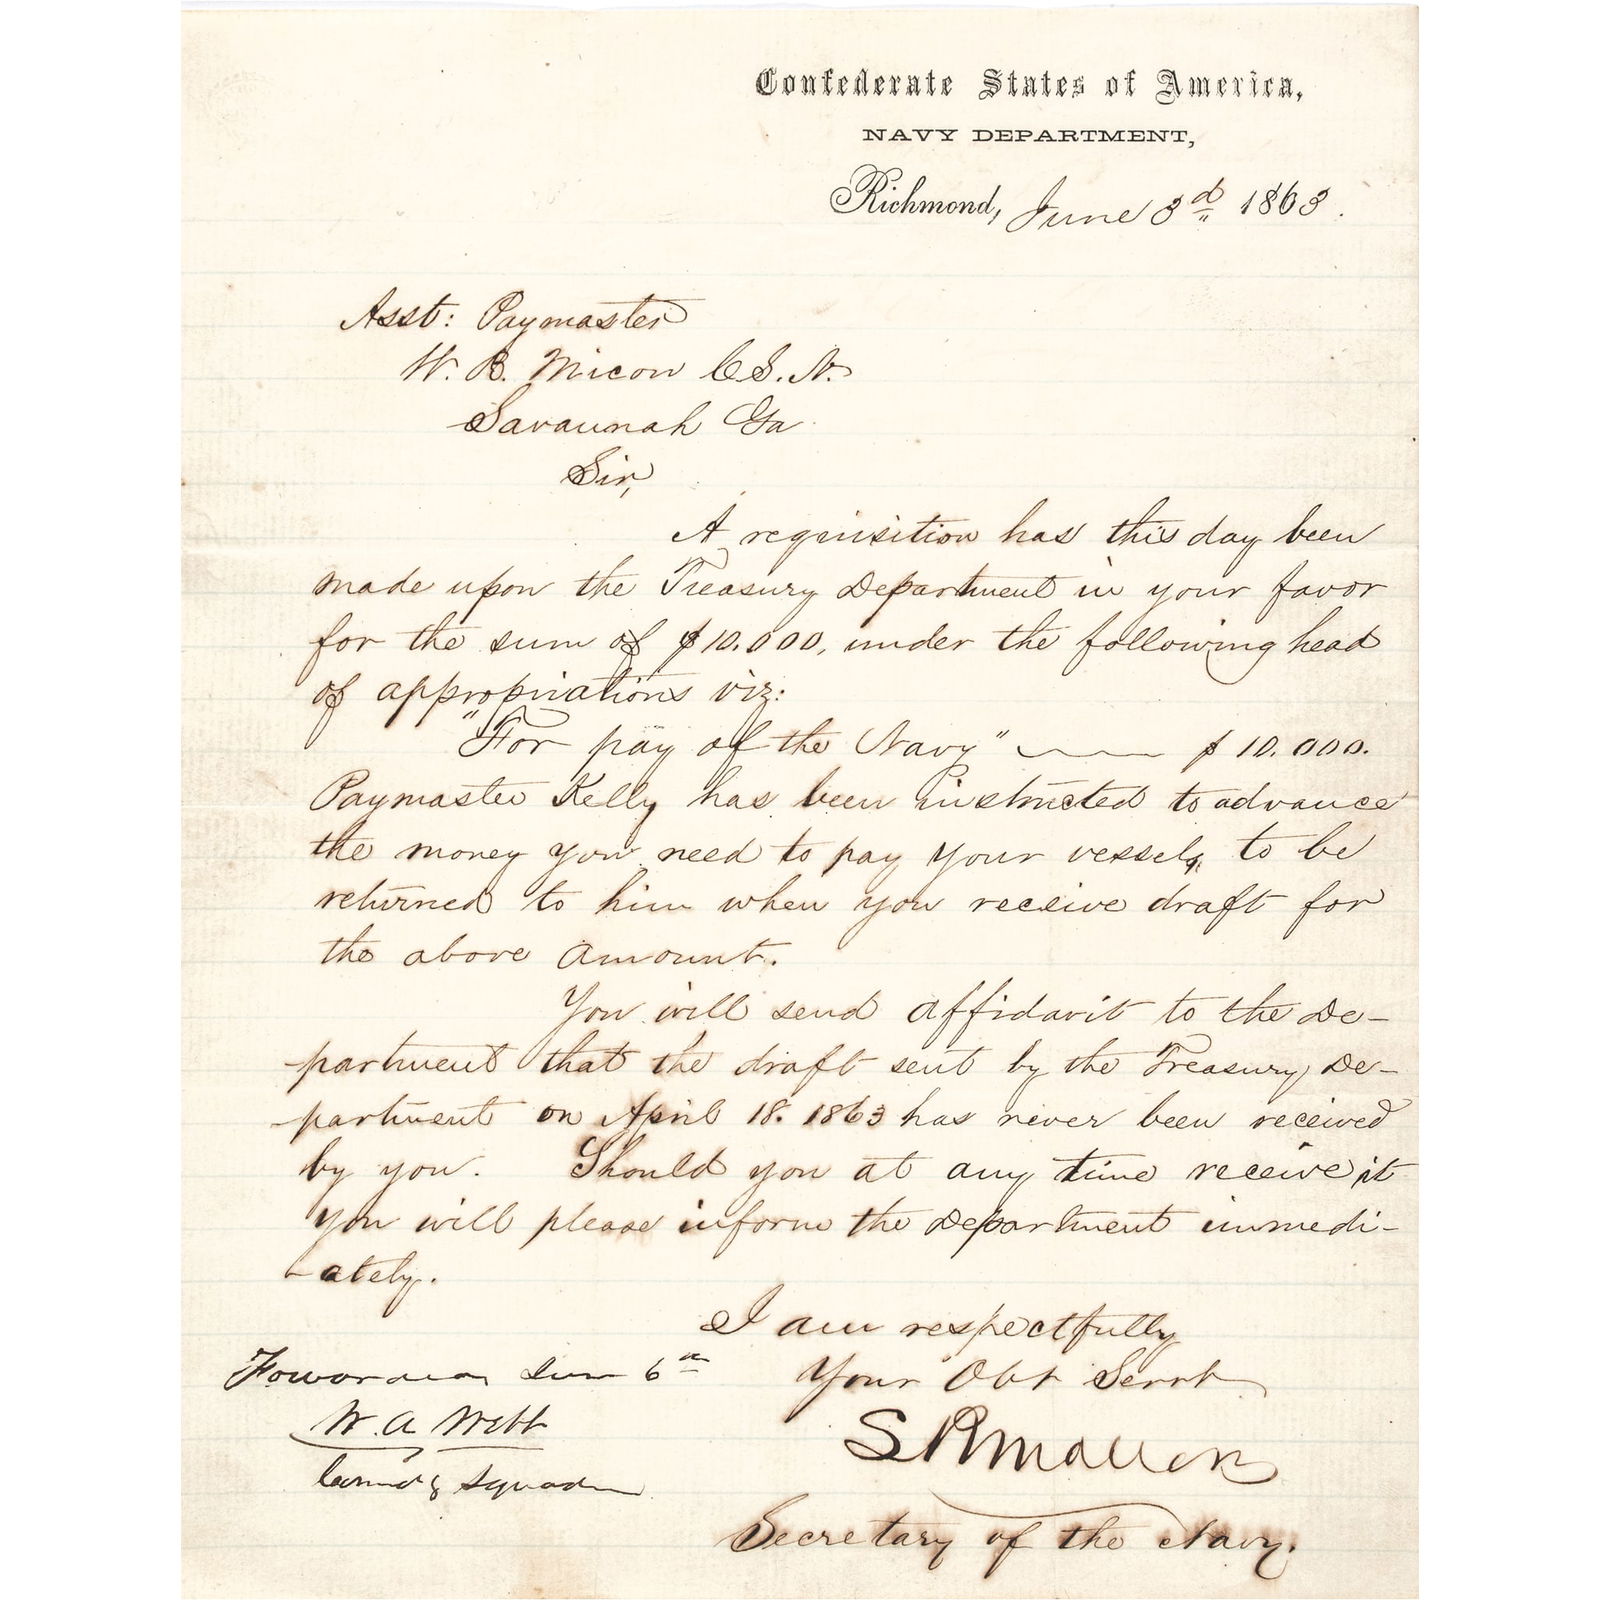 Confederate States of America,
NAVY DEPARTMENT,
Richmond, June 3d 1863.
Asst: Paymaster
W. B. Micou C.S.N.
Savannah Ga
Sir,
A requisition has this day been
made upon the Treasury Department in your favor
for the sum of $10.000, under the following head
of appropriations viz:
"For pay of the Navy" $10.000.
Paymaster Kelly has been instructed to advance
the money you need to pay your vessels, to be
returned to him when you receive draft for
the above amount.
You will send affidavit to the De-
-partment that the draft sent by the Treasury De-
-partment on April 18. 1863 has never been received
by you. Should you at any time receive it
you will please inform the Department immedi-
-ately.
I am respectfully
Your Obt Servt
S R Mallory
Secretary of the Navy.
Forwarded June 6th
W. A. Webb
Comdg Squadn